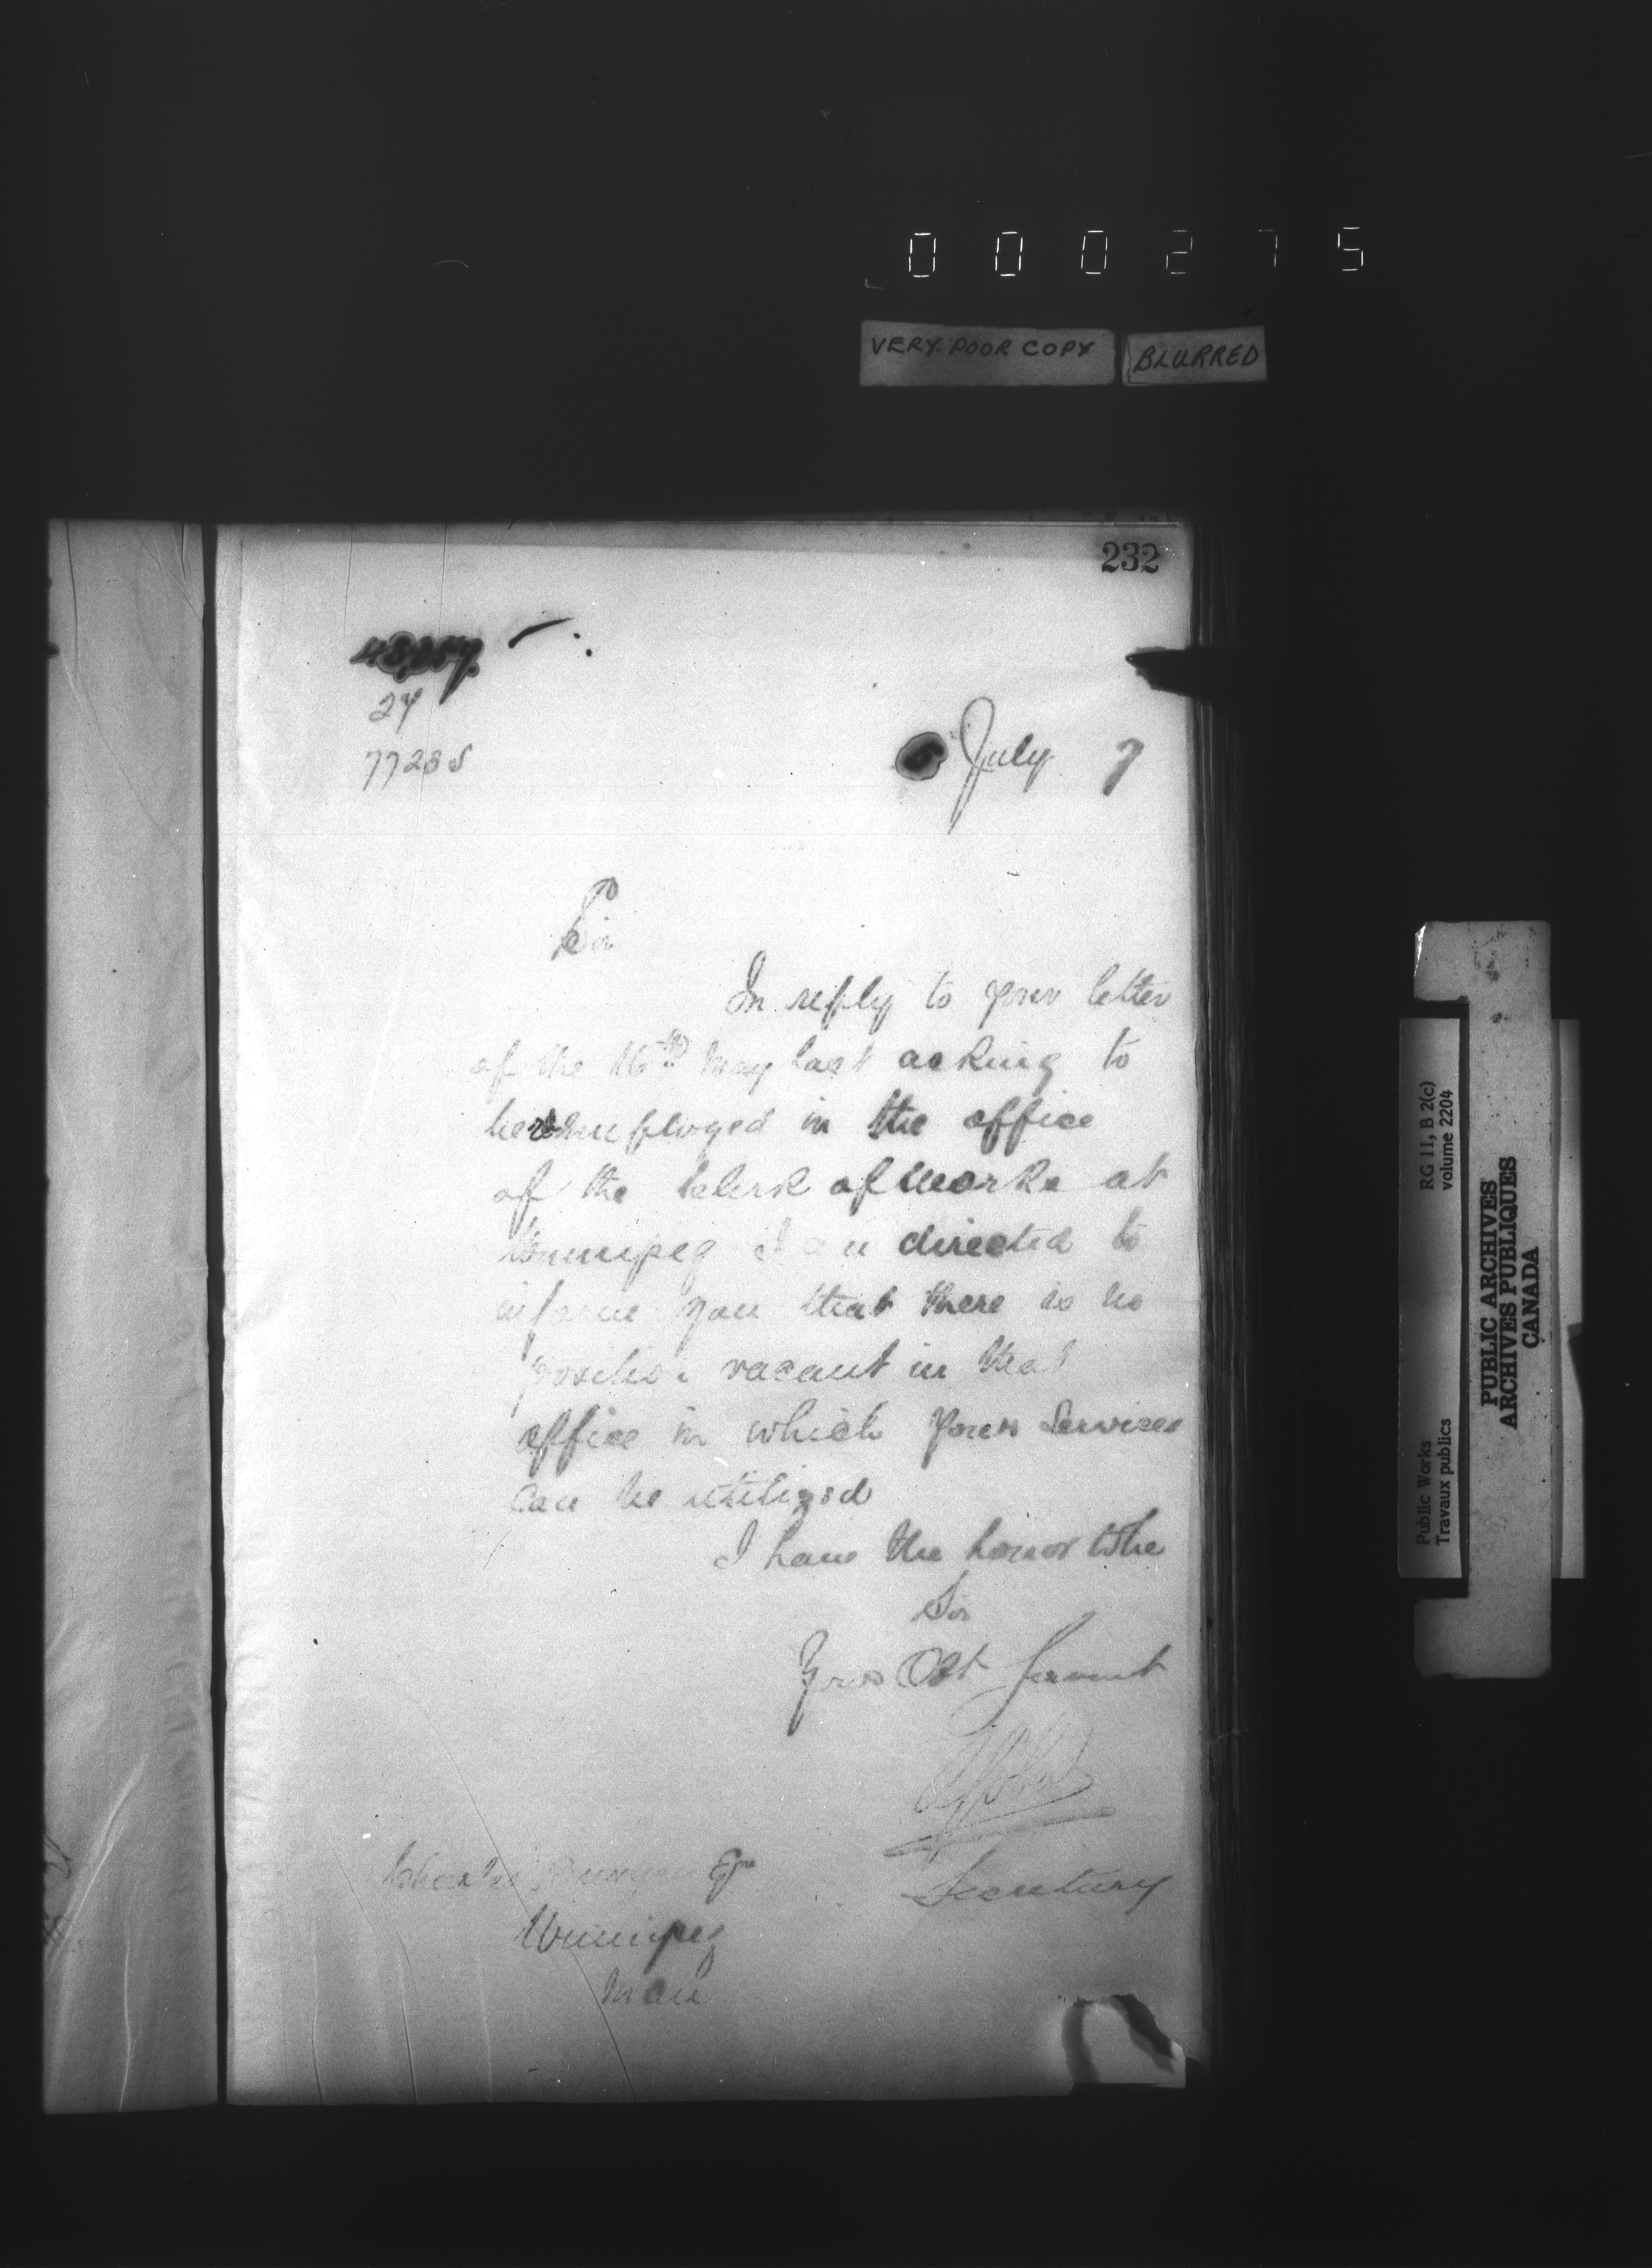 000275
VERY POOR COPY BLURRED
232
27
77235
5 July 7
Sir
In reply to your letter
of the 16th May last asking to
be reemployed in the office
of the Clerk of Works at
Winnipeg I am directed to
inform you that there is no
position vacant in that
office in which your Services
can be utilized
I have the honor to be
Sir
Yrs Obt Servant
Secretary
Charles Esqr
Winnipeg
Man
Public Works RG 11, B 2(c)
Travaux publics volume 2204
PUBLIC ARCHIVES
ARCHIVES PUBLIQUES
CANADA